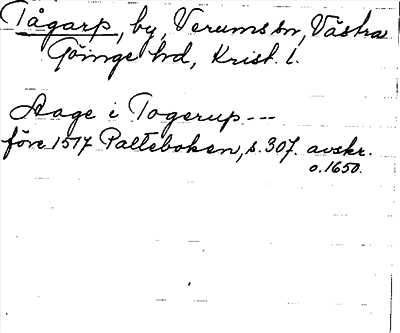 Tågarp, by, Verums sn, Västra
Göinge hd, Krist. l.
Aage i Togerup ---
före 1517 Palteboken, s. 307. avskr.
o. 1650.